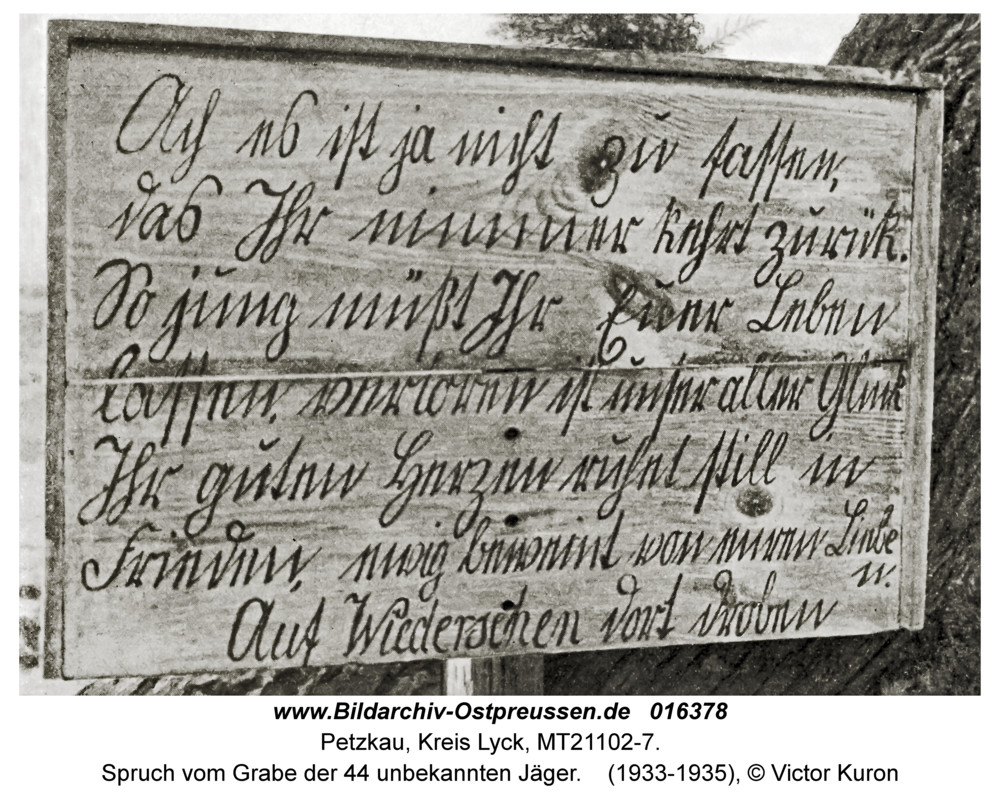 Ach es ist ja nicht zu fassen,
das Ihr nimmer kehrt zurük.
So jung müßt Ihr Euer Leben
lassen, verloren ist unser aller Glück
Ihr guten Herzen ruhet still in
Frieden, ewig beweint von euren Liebe
n.
Auf Wiedersehen dort droben
www.Bildarchiv-Ostpreussen.de 016378
Petzkau, Kreis Lyck, MT21102-7.
Spruch vom Grabe der 44 unbekannten Jäger. (1933-1935), © Victor Kuron